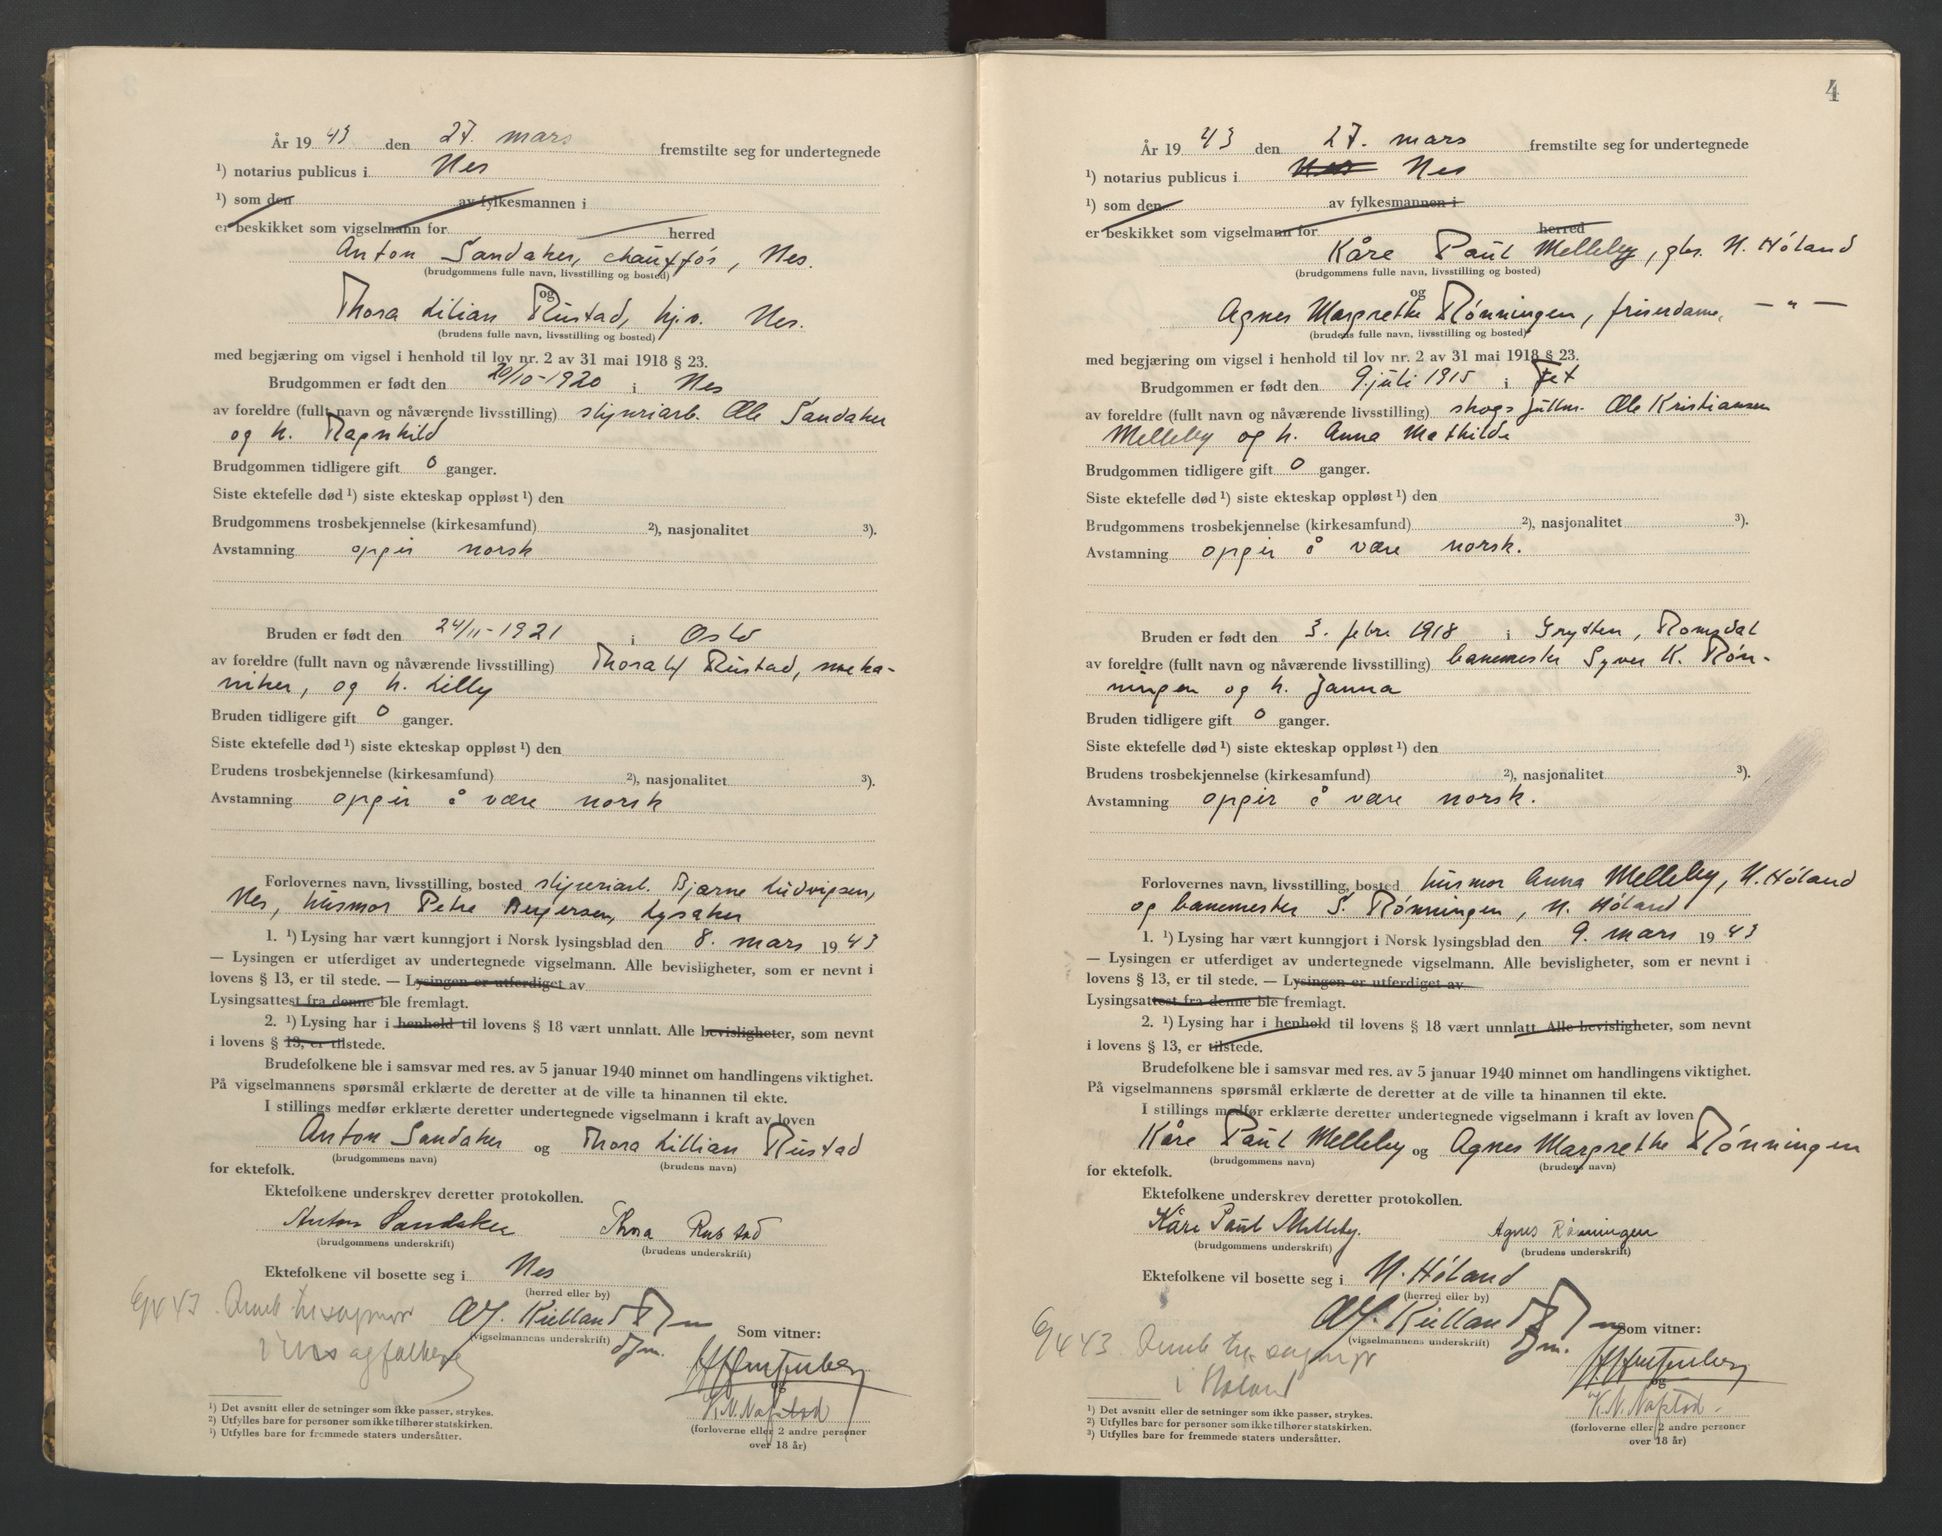 År 1943 den 27. mars fremstilte seg for undertegnede
¹) notarius publicus i Nes
¹) som den av fylkesmannen i
er beskikket som vigselmann for herred
Anton Sandaker, chauffør, Nes.
(brudgommens fulle navn, livsstilling og bosted)
og
Thora Lilian Rustad, hj.v. Nes.
(brudens fulle navn, livsstilling og bosted)
med begjæring om vigsel i henhold til lov nr. 2 av 31 mai 1918 § 23.
Brudgommen er født den 20/10-1920 i Nes
av foreldre (fullt navn og nåværende livsstilling) sliperiarb. Ole Sandaker
og h. Ragnhild
Brudgommen tidligere gift 0 ganger.
Siste ektefelle død ¹) siste ekteskap oppløst ¹) den
Brudgommens trosbekjennelse (kirkesamfund) ²), nasjonalitet ³).
Avstamning opgir norsk
Bruden er født den 24/11-1921 i Oslo
av foreldre (fullt navn og nåværende livsstilling) Thoralf Rustad, meka-
niker, og h. Lilly
Bruden tidligere gift 0 ganger.
Siste ektefelle død ¹) siste ekteskap oppløst ¹) den
Brudens trosbekjennelse (kirkesamfund) ²), nasjonalitet ³).
Avstamning opgir å være norsk
Forlovernes navn, livsstilling, bosted sliperiarb. Bjarne Ludvigsen,
Nes, husmor Petra Bergersen, Lysaker
1. ¹) Lysing har vært kunngjort i Norsk lysingsblad den 8. mars 1943
— Lysingen er utferdiget av undertegnede vigselmann. Alle bevisligheter, som er nevnt i
lovens § 13, er til stede. — Lysingen er utferdiget av
Lysingsattest fra denne ble fremlagt.
2. ¹) Lysing har i henhold til lovens § 18 vært unnlatt. Alle bevisligheter, som nevnt
i lovens § 13, er tilstede.
Brudefolkene ble i samsvar med res. av 5 januar 1940 minnet om handlingens viktighet.
På vigselmannens spørsmål erklærte de deretter at de ville ta hinannen til ekte.
I stillings medfør erklærte deretter undertegnede vigselmann i kraft av loven
Anton Sandaker og Thora Lillian Rustad
(brudgommens navn) (brudens navn)
for ektefolk.
Ektefolkene underskrev deretter protokollen.
Anton Sandaker Thora Rustad
(brudgommens underskrift) (brudens underskrift)
Ektefolkene vil bosette seg i Nes
(herred eller by)
Kielland
(vigselmannens underskrift) Som vitner:
og
K. N. Nafstad
(forloverne eller 2 andre personer
over 18 år)
¹) Det avsnitt eller de setninger som ikke passer, strykes.
²) Utfylles bare for personer som ikke tilhører statskirken.
¹) Utfylles bare for fremmede staters undersåtter.
4
År 1943 den 27. mars fremstilte seg for undertegnede
¹) notarius publicus i Nes Nes
¹) som den av fylkesmannen i
er beskikket som vigselmann for herred
Kåre Paul Melleby, gbr. N. Høland
(brudgommens fulle navn, livsstilling og bosted)
og
Agnes Margrethe Rønningen, friserdame, — " —
(brudens fulle navn, livsstilling og bosted)
med begjæring om vigsel i henhold til lov nr. 2 av 31 mai 1918 § 23.
Brudgommen er født den 9. juli 1915 i Fet
av foreldre (fullt navn og nåværende livsstilling) skogsfullm. Ole Kristiansen
Melleby og h. Anna Mathilde
Brudgommen tidligere gift 0 ganger.
Siste ektefelle død ¹) siste ekteskap oppløst ¹) den
Brudgommens trosbekjennelse (kirkesamfund) ²), nasjonalitet ³).
Avstamning opgir å være norsk.
Bruden er født den 3. febr 1918 i Grytten, Romsdal
av foreldre (fullt navn og nåværende livsstilling) banemester Syver K. Røn-
ningen og h. Janna
Bruden tidligere gift 0 ganger.
Siste ektefelle død ¹) siste ekteskap oppløst ¹) den
Brudens trosbekjennelse (kirkesamfund) ²), nasjonalitet ³).
Avstamning opgir å være norsk.
Forlovernes navn, livsstilling, bosted husmor Anna Melleby, N. Høland
og banemester S. Rønningen, N. Høland
1. ¹) Lysing har vært kunngjort i Norsk lysingsblad den 9. mars 1943
— Lysingen er utferdiget av undertegnede vigselmann. Alle bevisligheter, som er nevnt i
lovens § 13, er til stede. — Lysingen er utferdiget av
Lysingsattest fra denne ble fremlagt.
2. ¹) Lysing har i henhold til lovens § 18 vært unnlatt. Alle bevisligheter, som nevnt
i lovens § 13, er tilstede.
Brudefolkene ble i samsvar med res. av 5 januar 1940 minnet om handlingens viktighet.
På vigselmannens spørsmål erklærte de deretter at de ville ta hinannen til ekte.
I stillings medfør erklærte deretter undertegnede vigselmann i kraft av loven
Kåre Paul Melleby og Agnes Margrethe Rønningen
(brudgommens navn) (brudens navn)
for ektefolk.
Ektefolkene underskrev deretter protokollen.
Kåre Paul Melleby. Agnes Rønningen
(brudgommens underskrift) (brudens underskrift)
Ektefolkene vil bosette seg i N. Høland
(herred eller by)
Kielland
(vigselmannens underskrift) Som vitner:
i Høland
og
K. N. Nafstad
(forloverne eller 2 andre personer
over 18 år)
¹) Det avsnitt eller de setninger som ikke passer, strykes.
²) Utfylles bare for personer som ikke tilhører statskirken.
³) Utfylles bare for fremmede staters undersåtter.